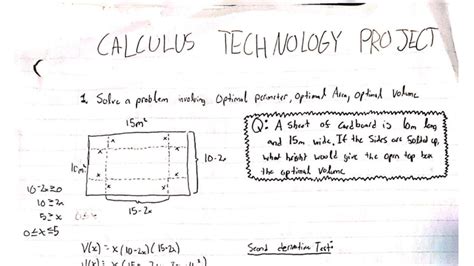 CALCULUS TECHNOLOGY PROJECT
1. Solve a problem involving Optimal perimeter, Optimal Area, Optimal Volume
Q: A sheet of cardboard is 10m long
and 15m wide. If the sides are folded up,
what height would give the open top box
the optimal volume
15m²
x x
x x
10m²
10-2x
15-2x
10-2x≥0
10≥2x
5≥x
0≤x
0≤x≤5
V(x) = x(10-2x)(15-2x)
Second derivative Test: